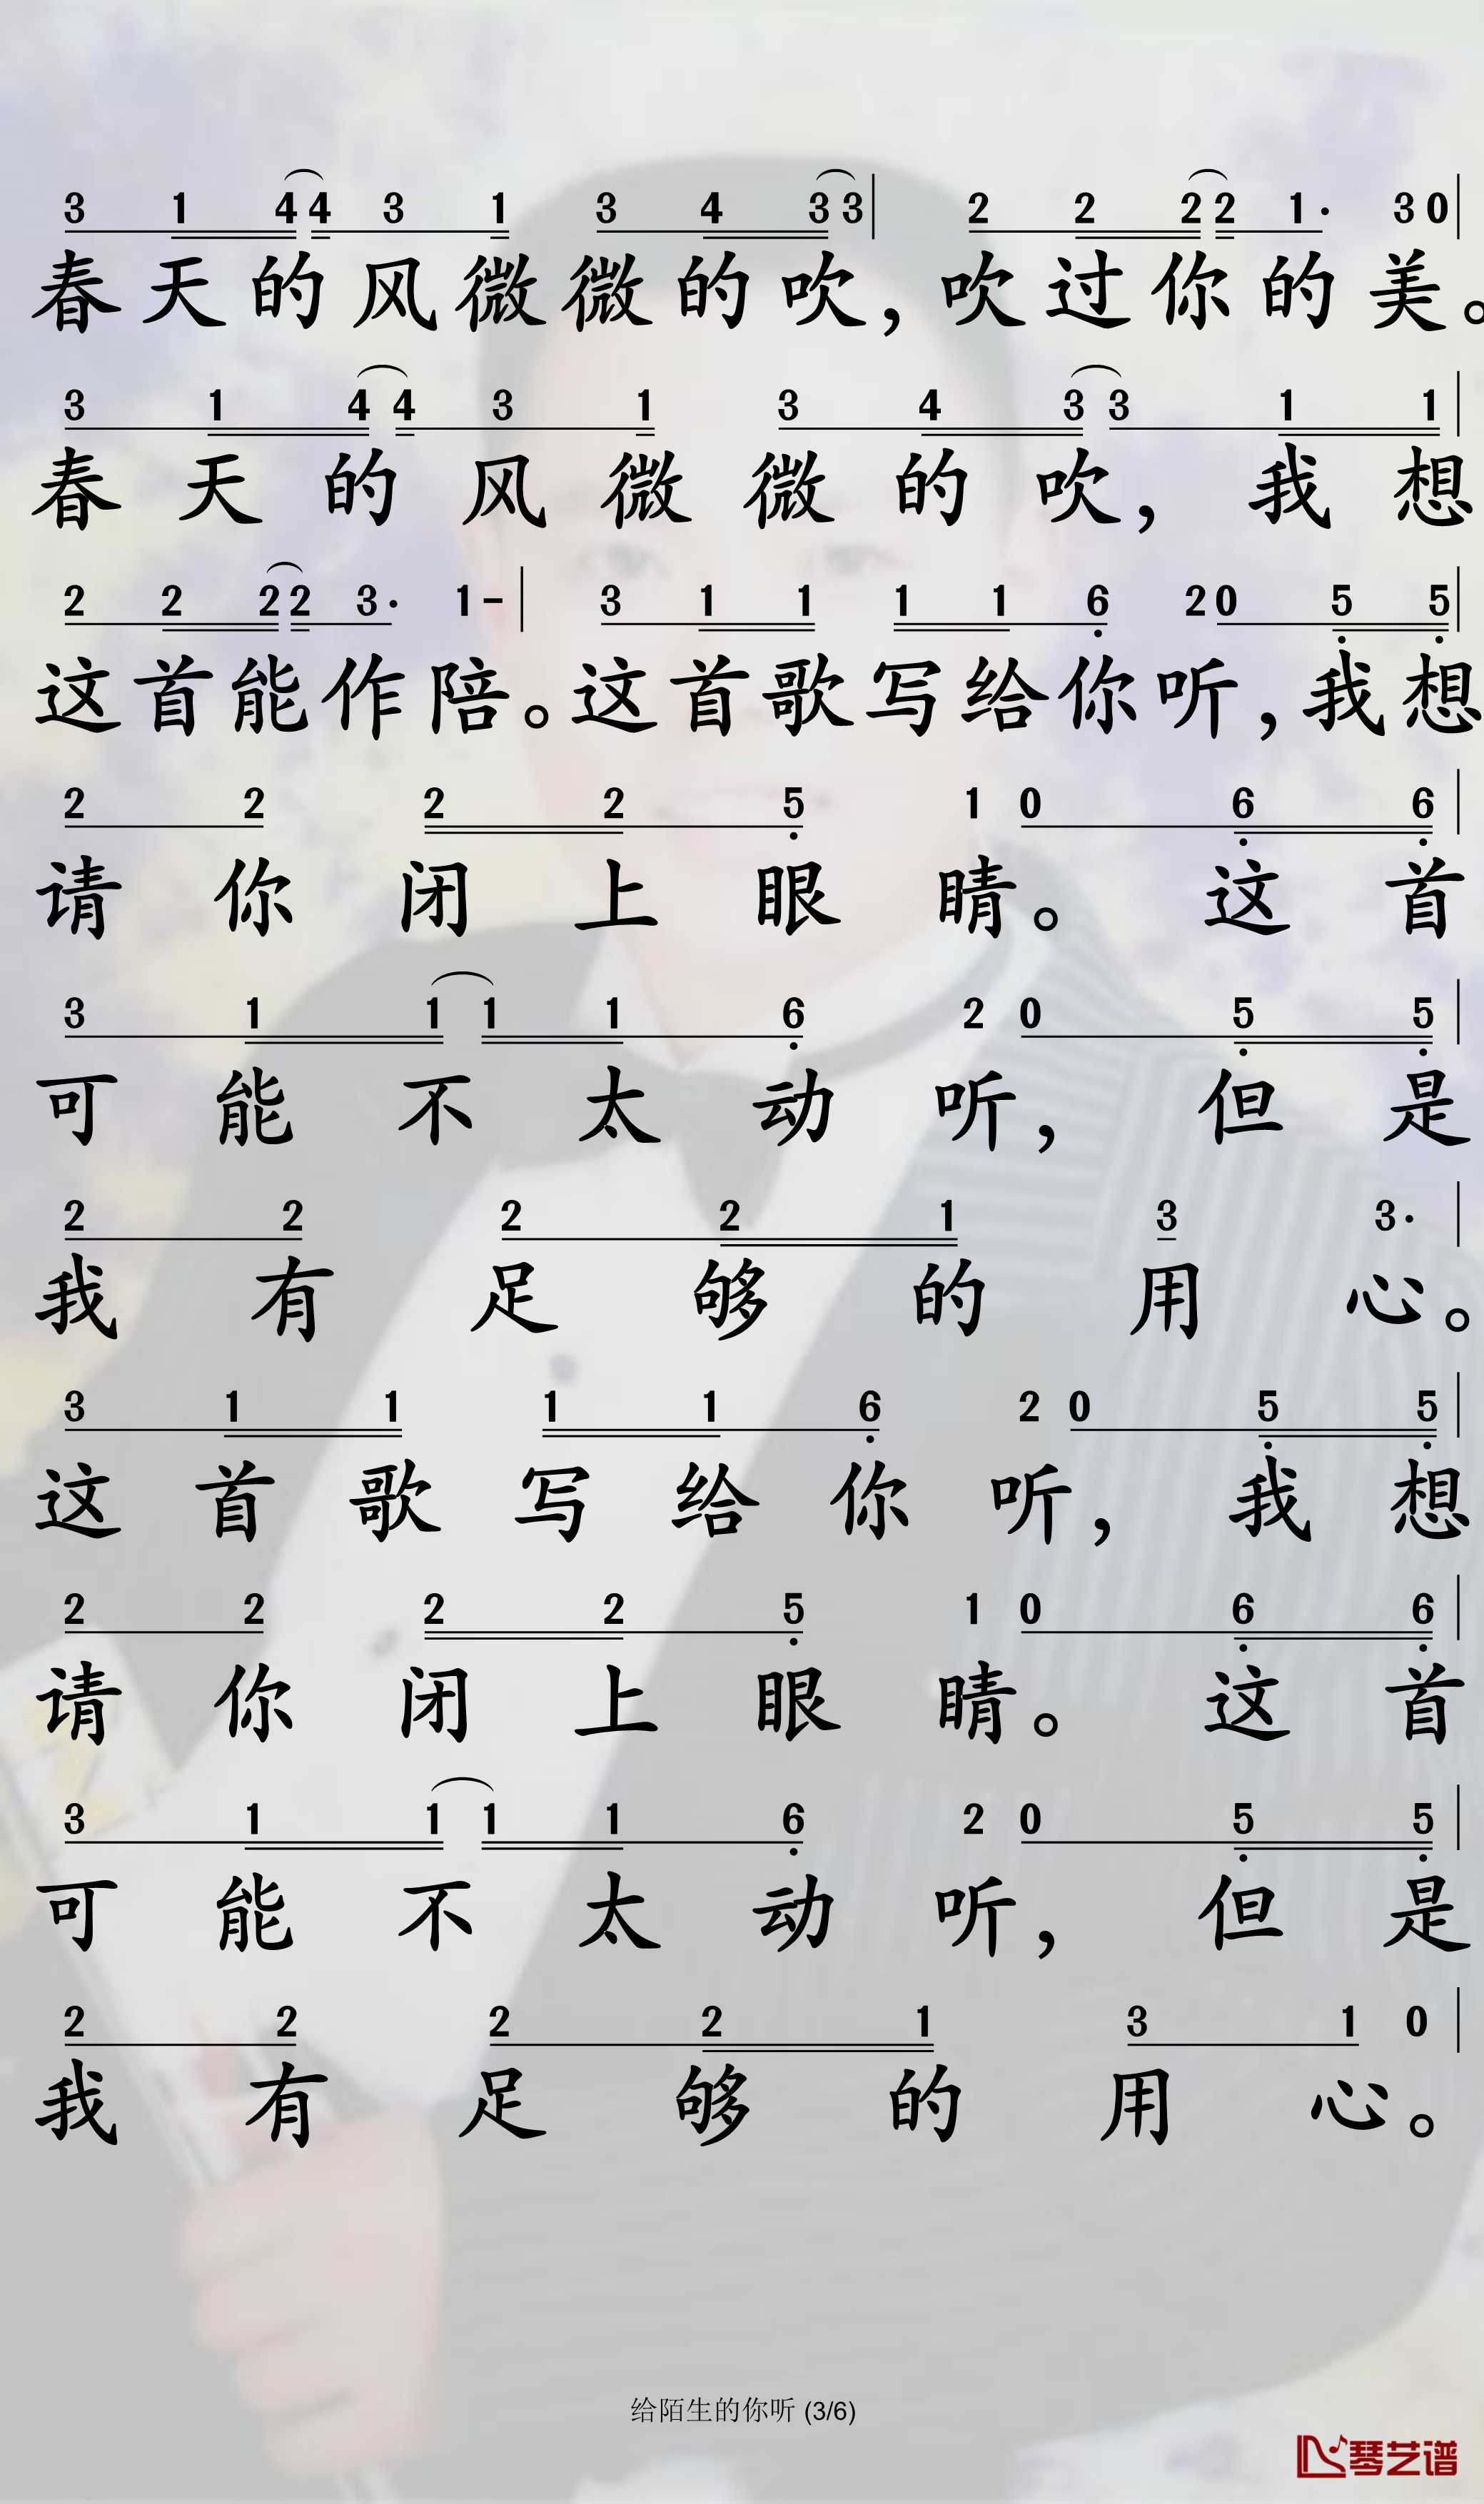 3 1 4 4 3 1 3 4 3 3 | 2 2 2 2 1· 3 0 |
春天的风微微的吹,吹过你的美。
3 1 4 4 3 1 3 4 3 3 1 1 |
春天的风微微的吹,我想
2 2 2 2 3· 1 - | 3 1 1 1 1 6 2 0 5 5 |
这首能作陪。这首歌写给你听,我想
2 2 2 2 5 1 0 6 6 |
请你闭上眼睛。这首
3 1 1 1 1 6 2 0 5 5 |
可能不太动听,但是
2 2 2 2 1 3 3· |
我有足够的用心。
3 1 1 1 1 6 2 0 5 5 |
这首歌写给你听,我想
2 2 2 2 5 1 0 6 6 |
请你闭上眼睛。这首
3 1 1 1 1 6 2 0 5 5 |
可能不太动听,但是
2 2 2 2 1 3 1 0 |
我有足够的用心。
给陌生的你听 (3/6)
琴艺谱